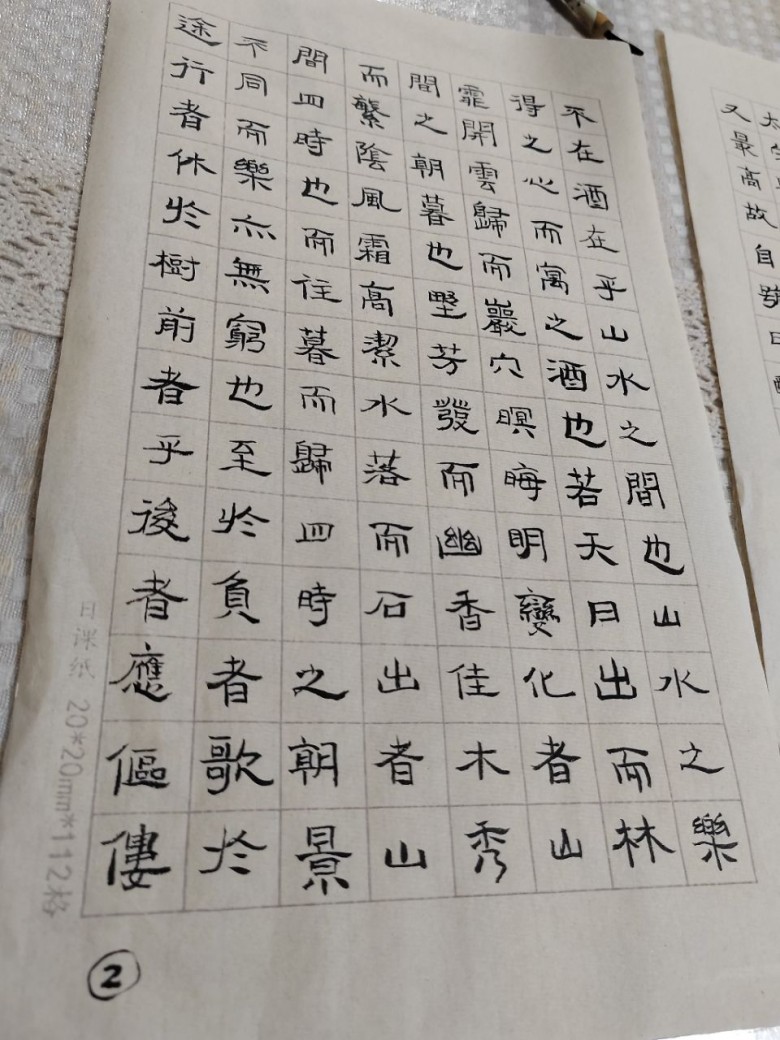 又最高故自號曰
不在酒在乎山水之間也山水之樂
得之心而寓之酒也若天日出而林
霏開雲歸而巖穴暝晦明變化者山
間之朝暮也墅芳發而幽香佳木秀
而繁陰風霜高潔水落而石出者山
間四時也而往暮而歸四時之朝景
不同而樂亦無窮也至於負者歌於
途行者休於樹前者乎後者應傴僂
日课纸 20*20mm*112格
②